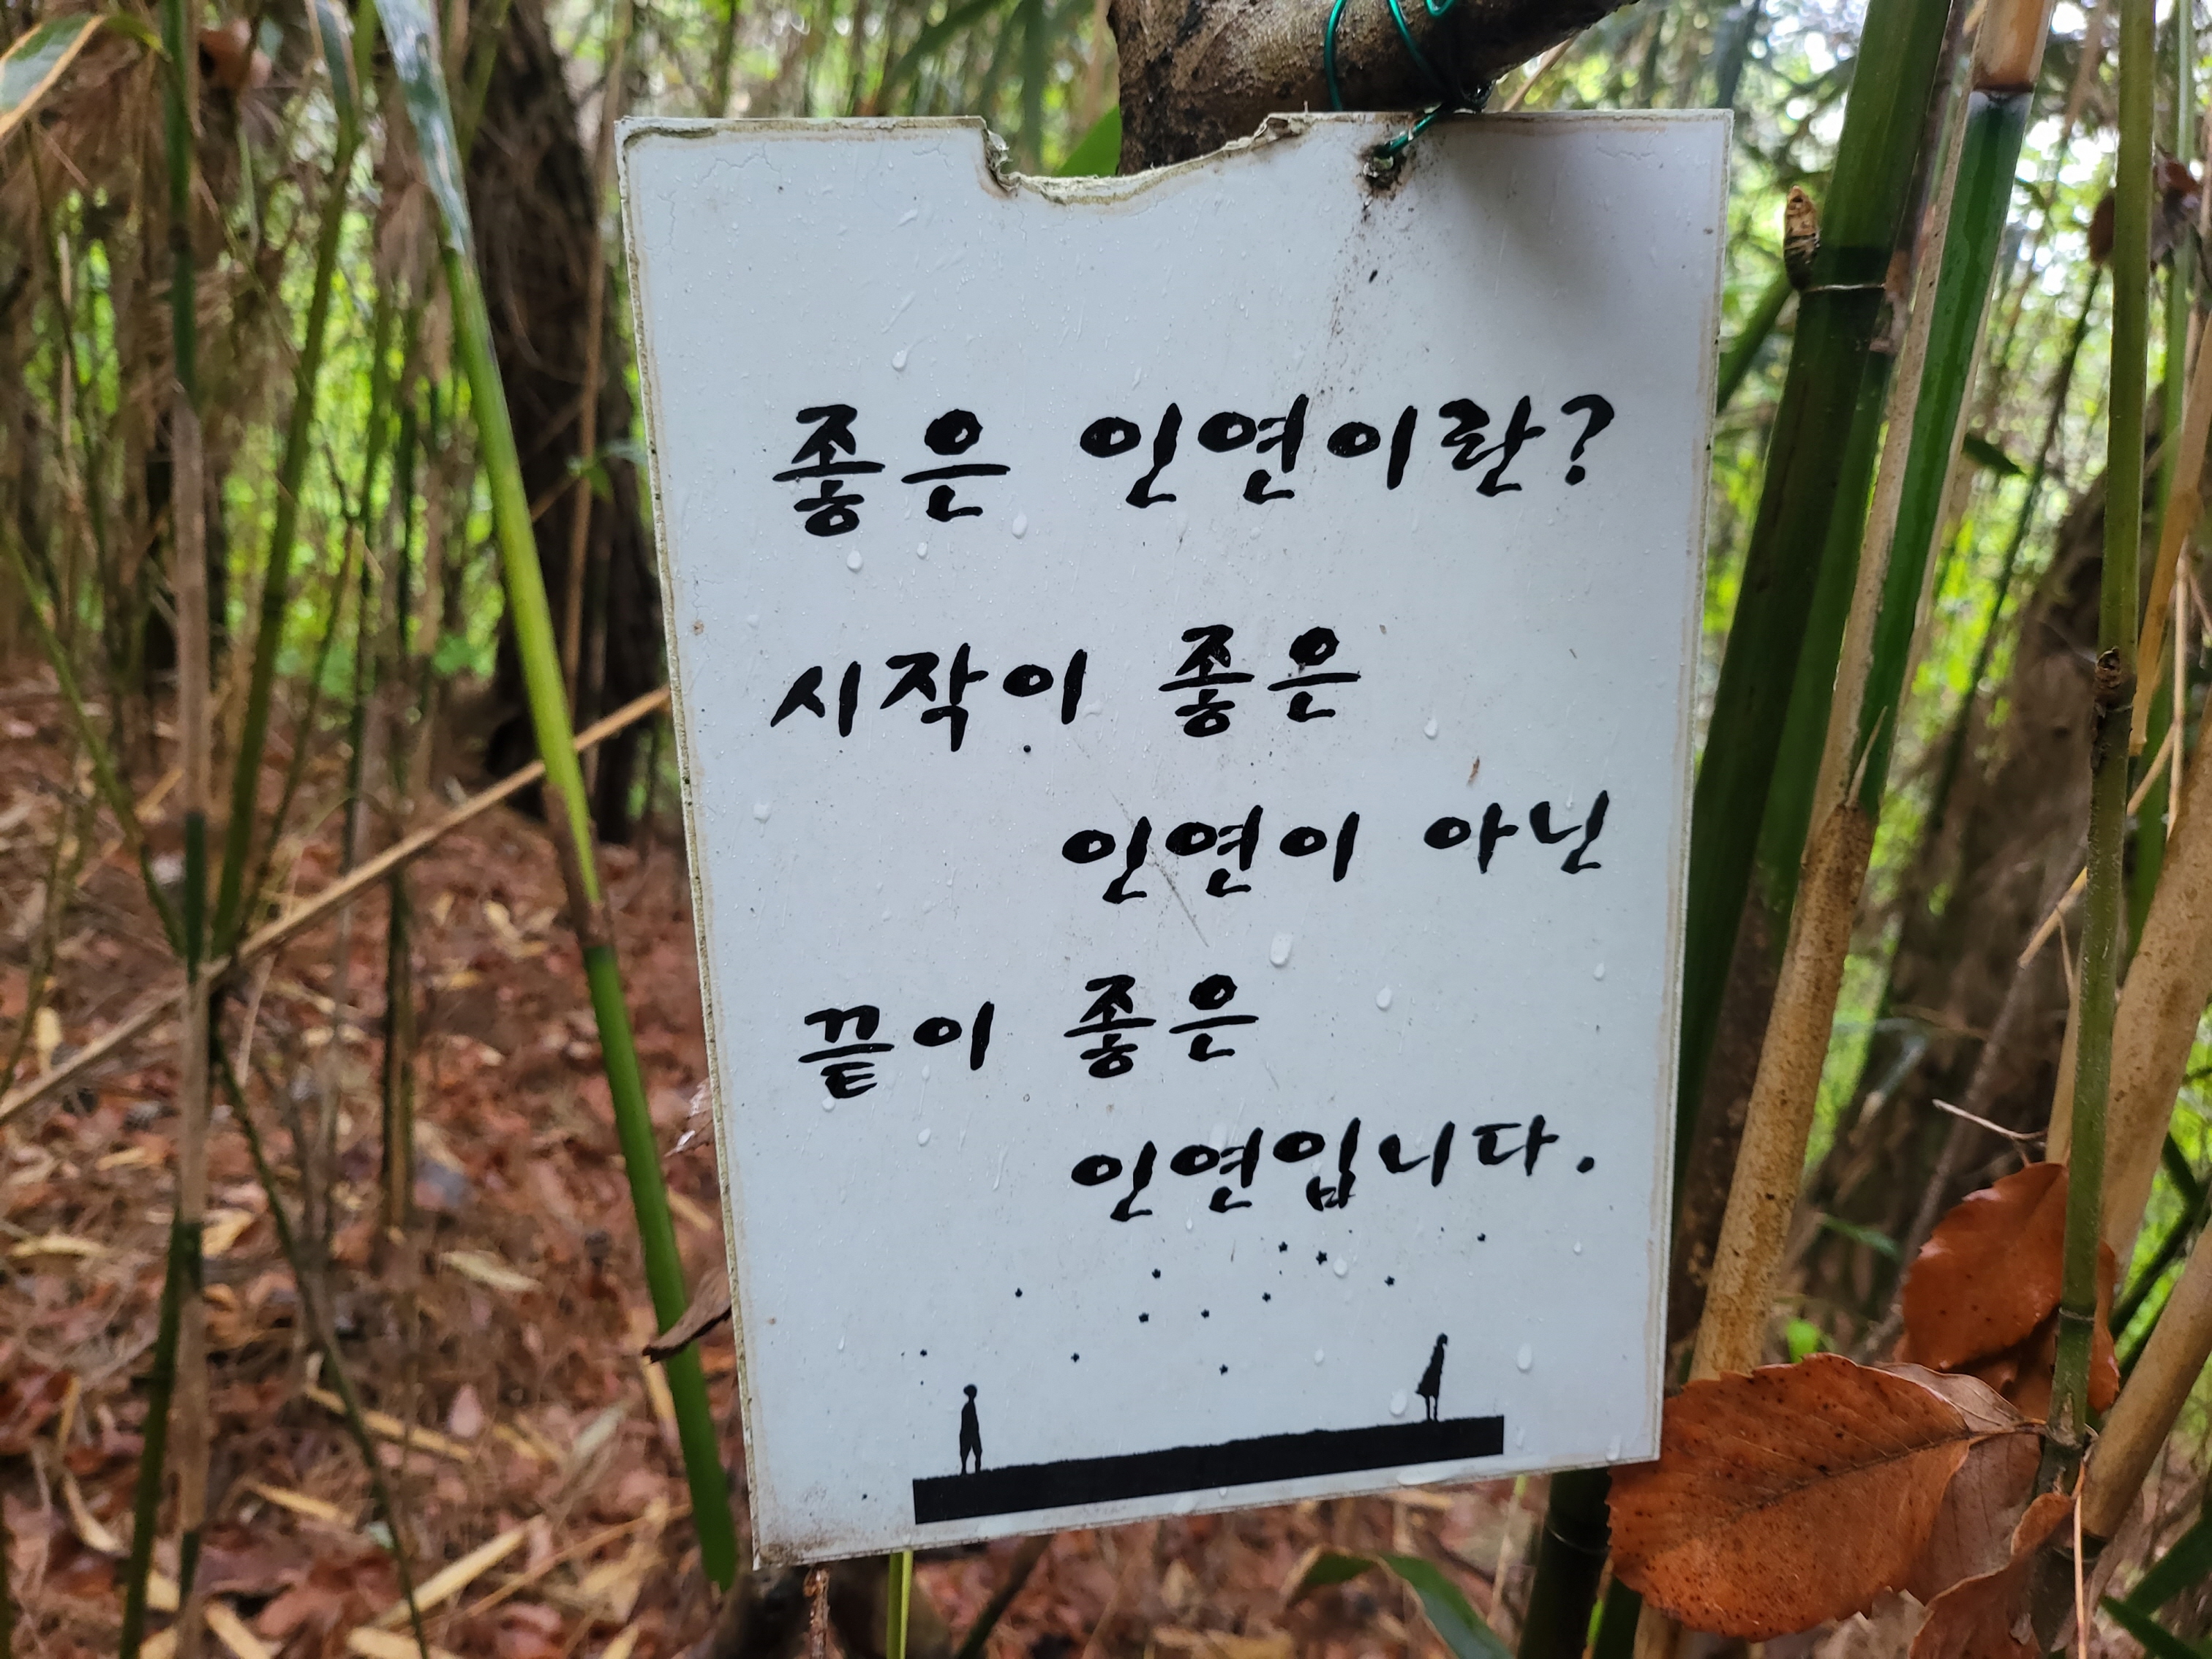 좋은 인연이란?
시작이 좋은
인연이 아닌
끝이 좋은
인연입니다.